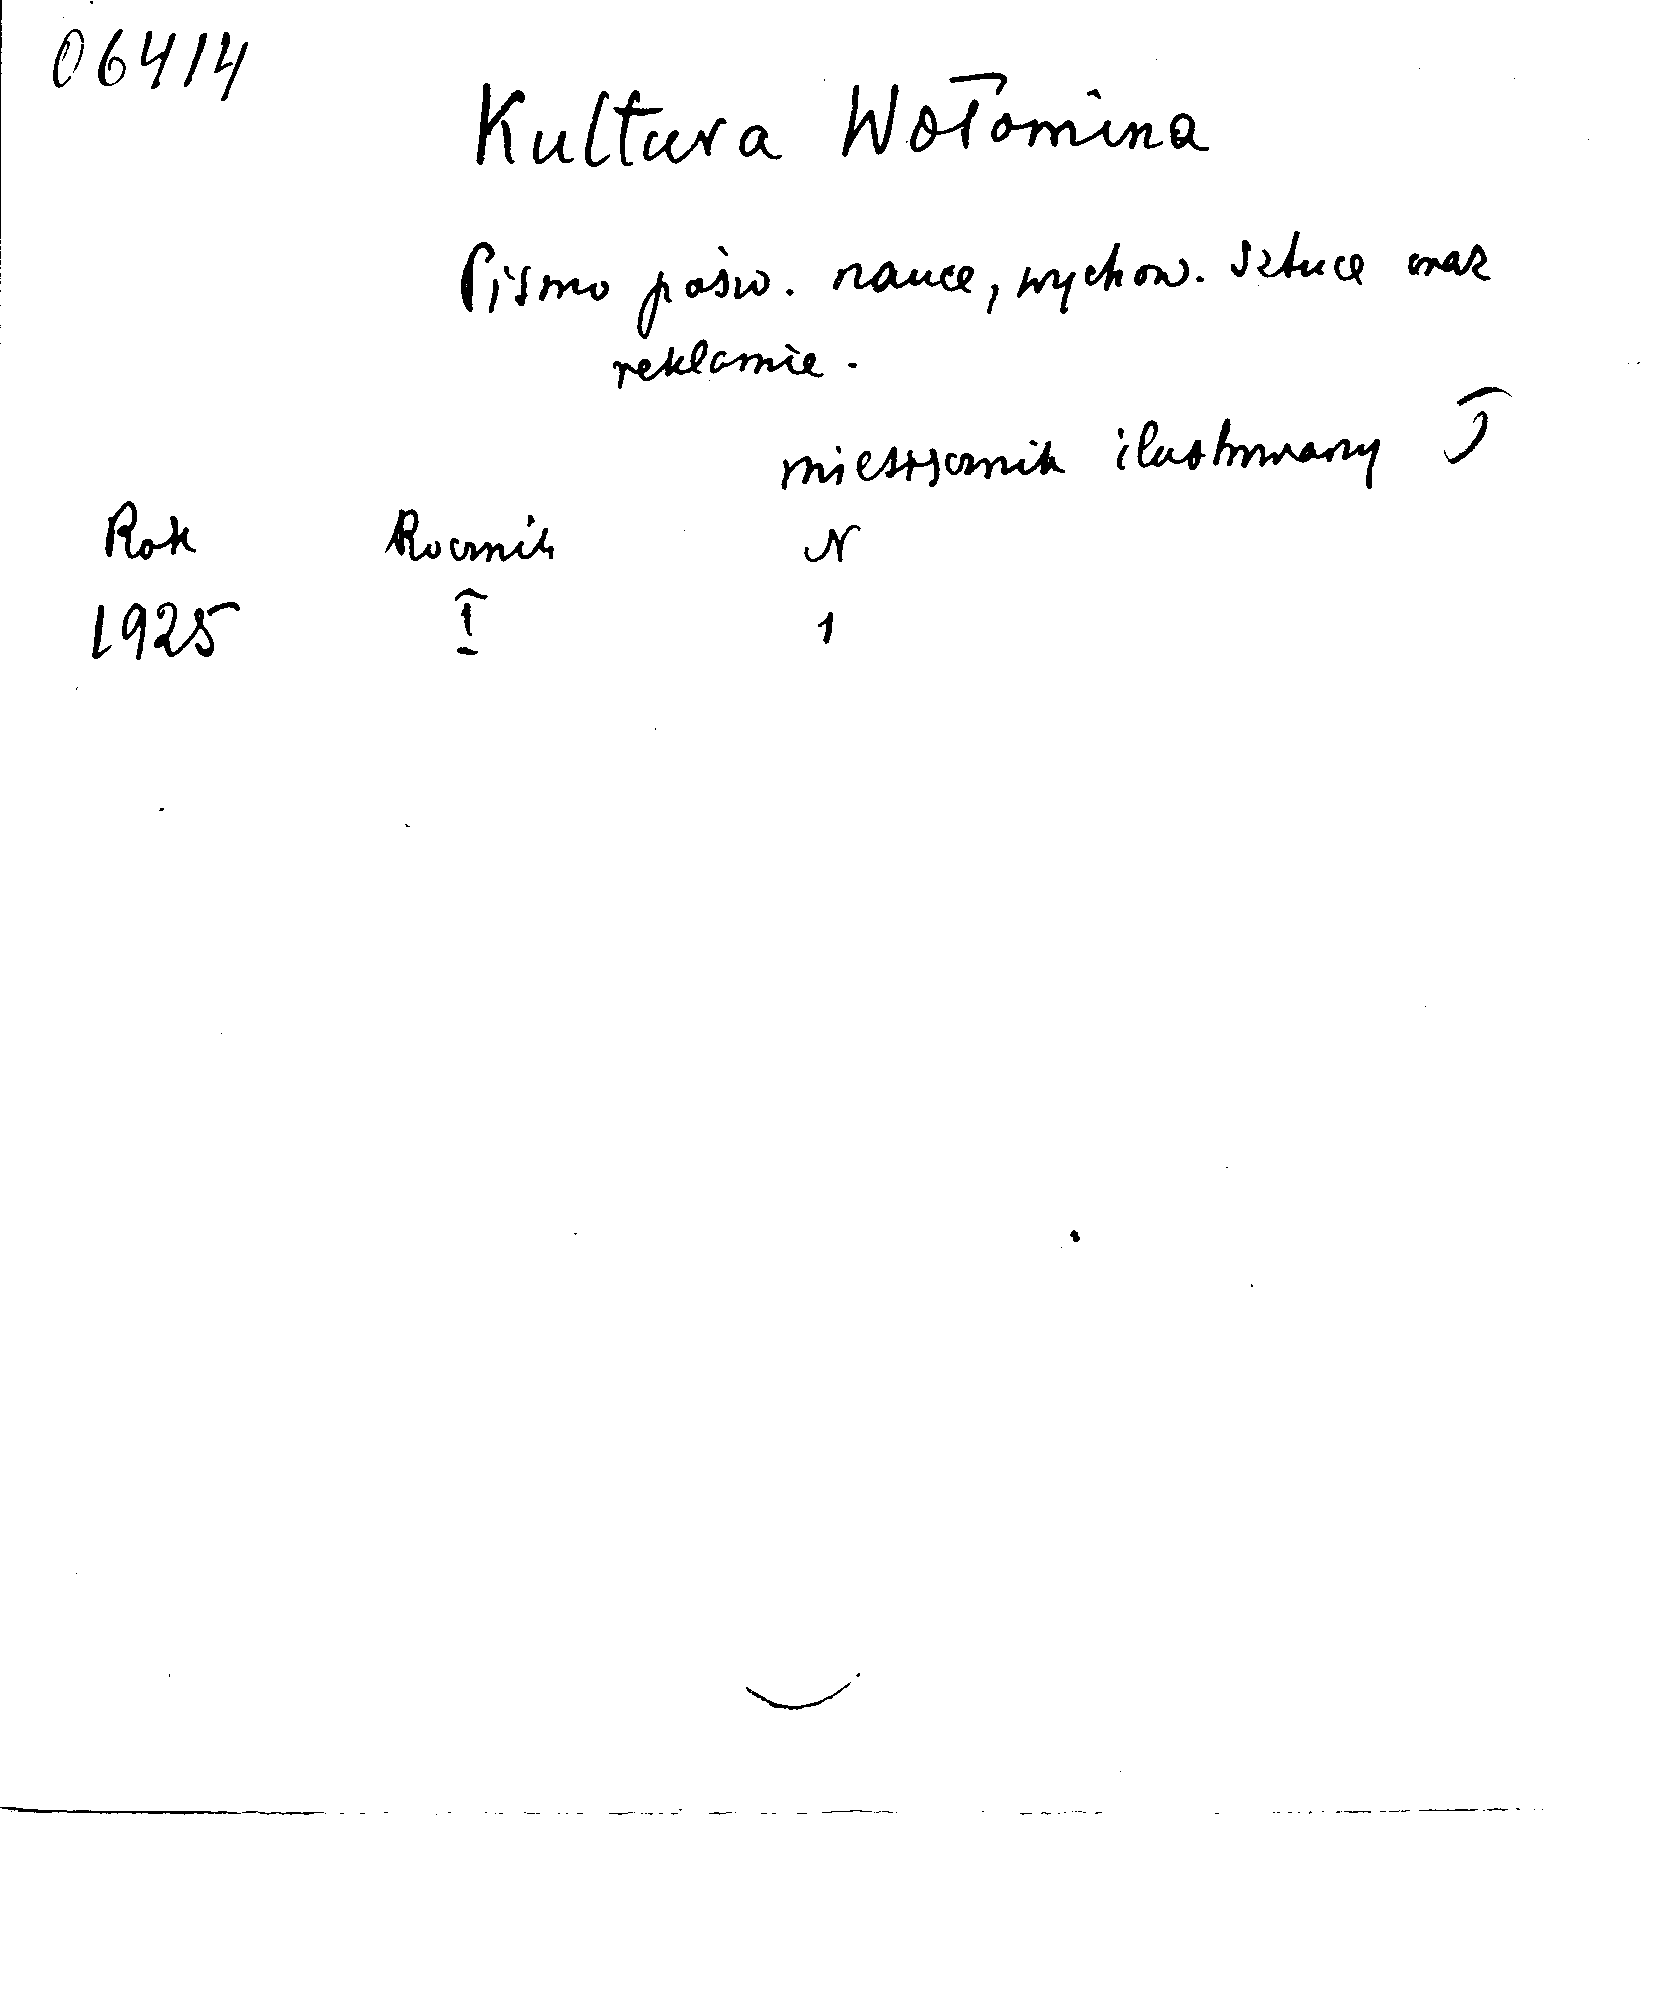 06414
Kultura Wołomina
Pismo pośw. nauce, wychow. sztuce oraz
reklamie.
miesięcznik ilustrowany
Rok Rocznik N
1925 I 1